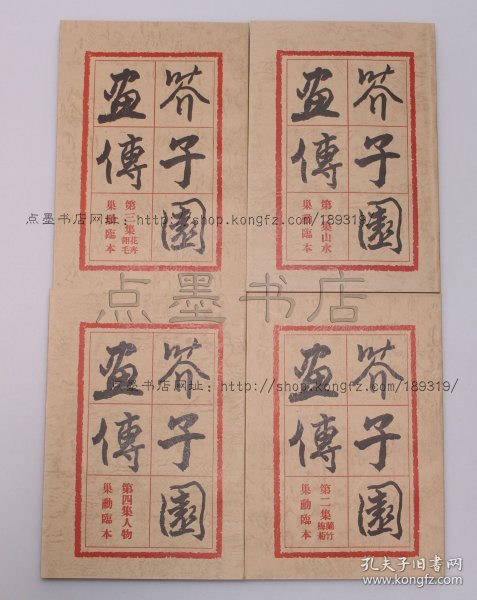 芥子園
畫傳
第三集花卉翎毛
巢勳臨本
芥子園
畫傳
第一集山水
巢勳臨本
点墨书店网址：http://shop.kongfz.com/189319/
点墨书店
芥子園
畫傳
第四集人物
巢勳臨本
芥子園
畫傳
第二集蘭竹梅菊
巢勳臨本
点墨书店网址：http://shop.kongfz.com/189319/
孔夫子旧书网
www.kongfz.com